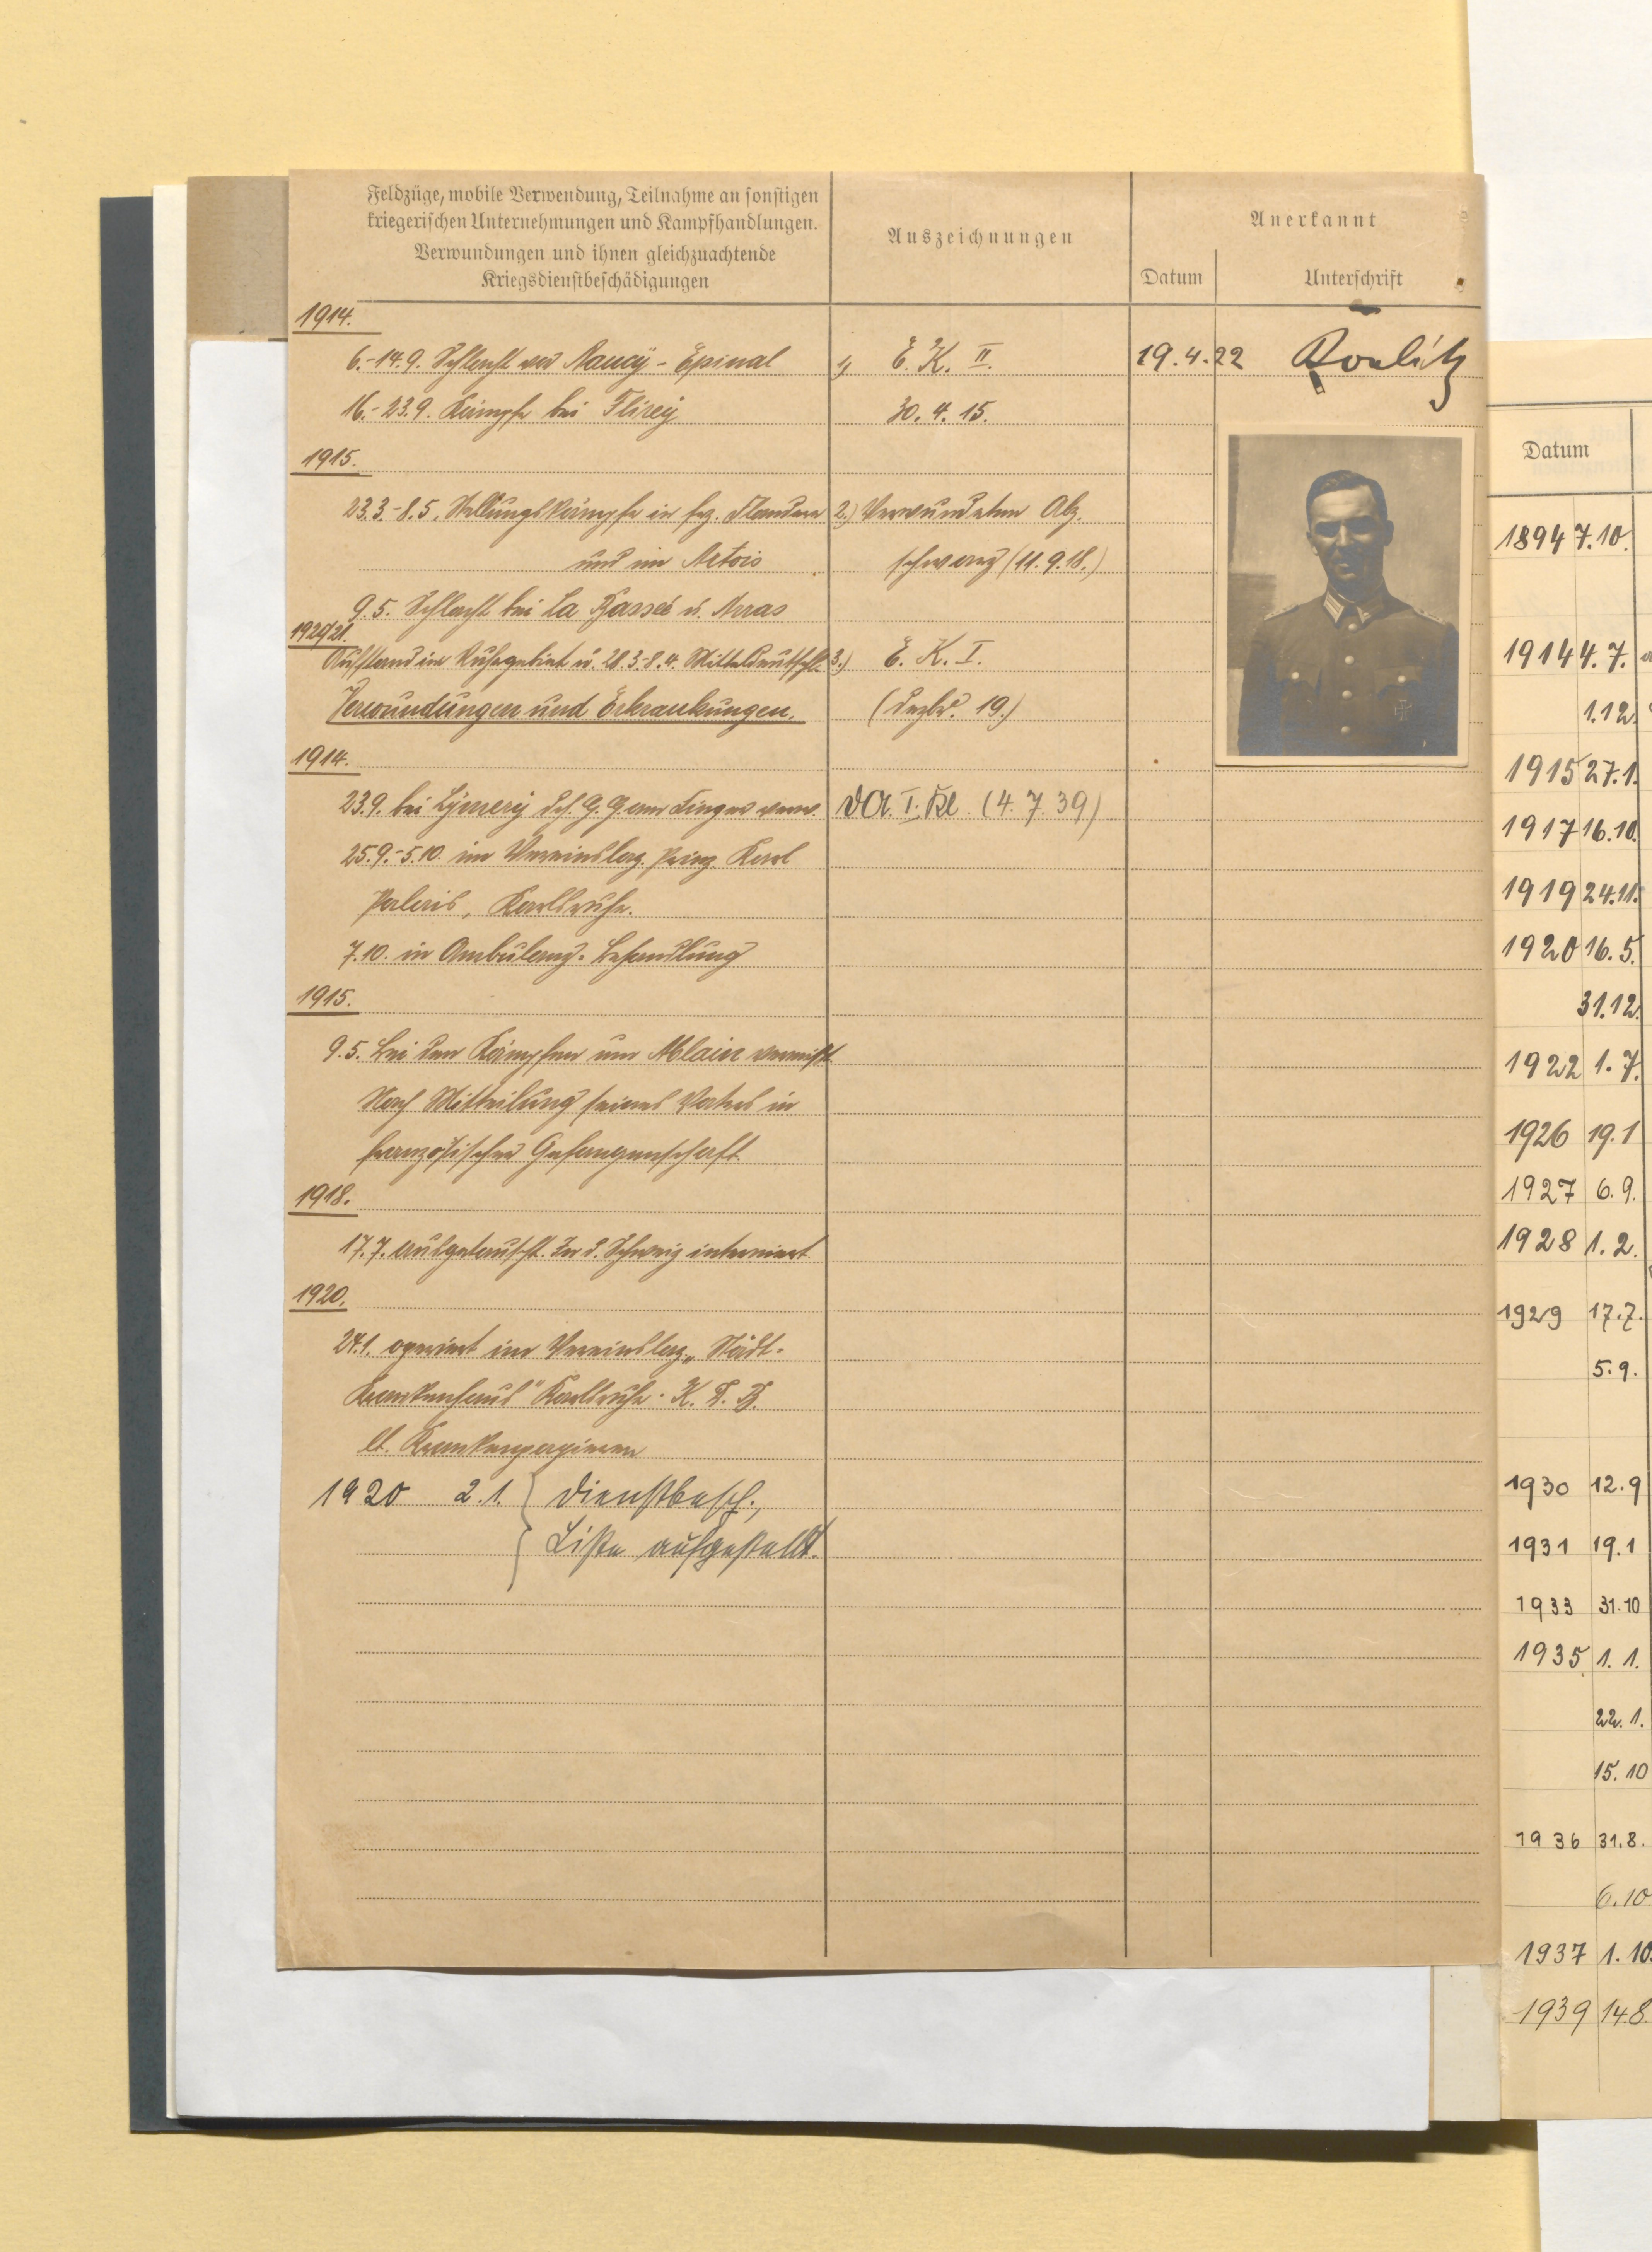 Feldzüge, mobile Verwendung, Teilnahme an sonstigen
kriegerischen Unternehmungen und Kampfhandlungen.
Verwundungen und ihnen gleichzuachtende
Kriegsdienstbeschädigungen
Auszeichnungen
Anerkannt
Datum
Unterschrift
1914.
6.-14.9. Schlacht vor Nancy-Epinal
16.-23.9. Kämpfe bei Flirey
1915.
23.3.-8.5. Stellungskämpfe in frz. Flandern
und im Artois
9.5. Schlacht bei La Bassée u. Arras
1920/21.
Aufstand im Ruhrgebiet u. 28.3.-8.4. Mitteldeutschl.
Verwundungen und Erkrankungen.
1914.
23.9. bei verw.
25.9.-5.10. im Vereinslaz. Prinz Karl
Palais, Karlsruhe.
7.10. in Ambulanz-Behandlung
1915.
9.5. Bei den Kämpfen um Ablain vermißt
Nach Mitteilung seines Vaters in
französischer Gefangenschaft
1918.
17.7. ausgetauscht. In d. Schweiz interniert
1920.
24.1. operiert im Vereinslaz. „Städt.
Krankenhaus" Karlsruhe. K. D. B.
lt. Krankenpapieren
1920 2.1. Dienstbesch.,
Liste aufgestellt.
1) E. K. II.
30. 4. 15.
2.) Verwundeten Abz.
schwarz (11.9.18.)
3.) E. K. I.
(Dezbr. 19.)
DA. I. Kl. (4. 7. 39)
19.4.22
Datum
1894 7.10.
1914 4.7.
1.12.
1915 27.1.
1917 16.10.
1919 24.11.
1920 16.5.
31.12.
1922 1.7.
1926 19.1
1927 6.9.
1928 1.2.
1929 17.7.
5.9.
1930 12.9
1931 19.1
1933 31.10
1935 1.1.
22.1.
15.10
1936 31.8.
6.10
1937 1.10.
1939 14.8.